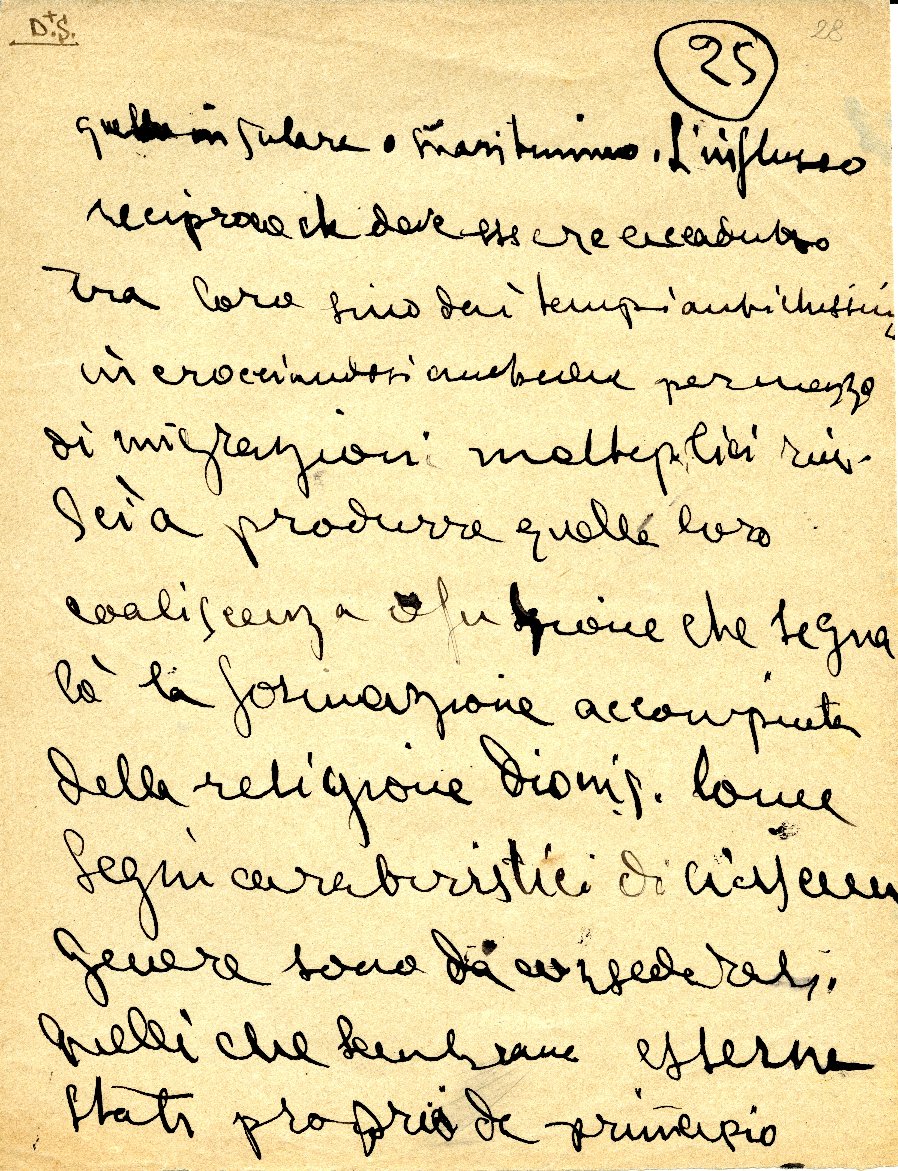 D+S.
25
28
insulare o marittimo. L'influsso
reciproco che deve essere accaduto
tra loro sino dai tempi antichissimi
incrocciandosi anche per mezzo
di migrazioni molteplici rius-
scì a produrre quella loro
coaliscenza o fuzione che segna
lò la formazione accompiuta
della religione Dionis. Come
segni caratteristici di ciascun
genere sono da considerarsi.
quelli che sembrano esserne
stati proprii da principio